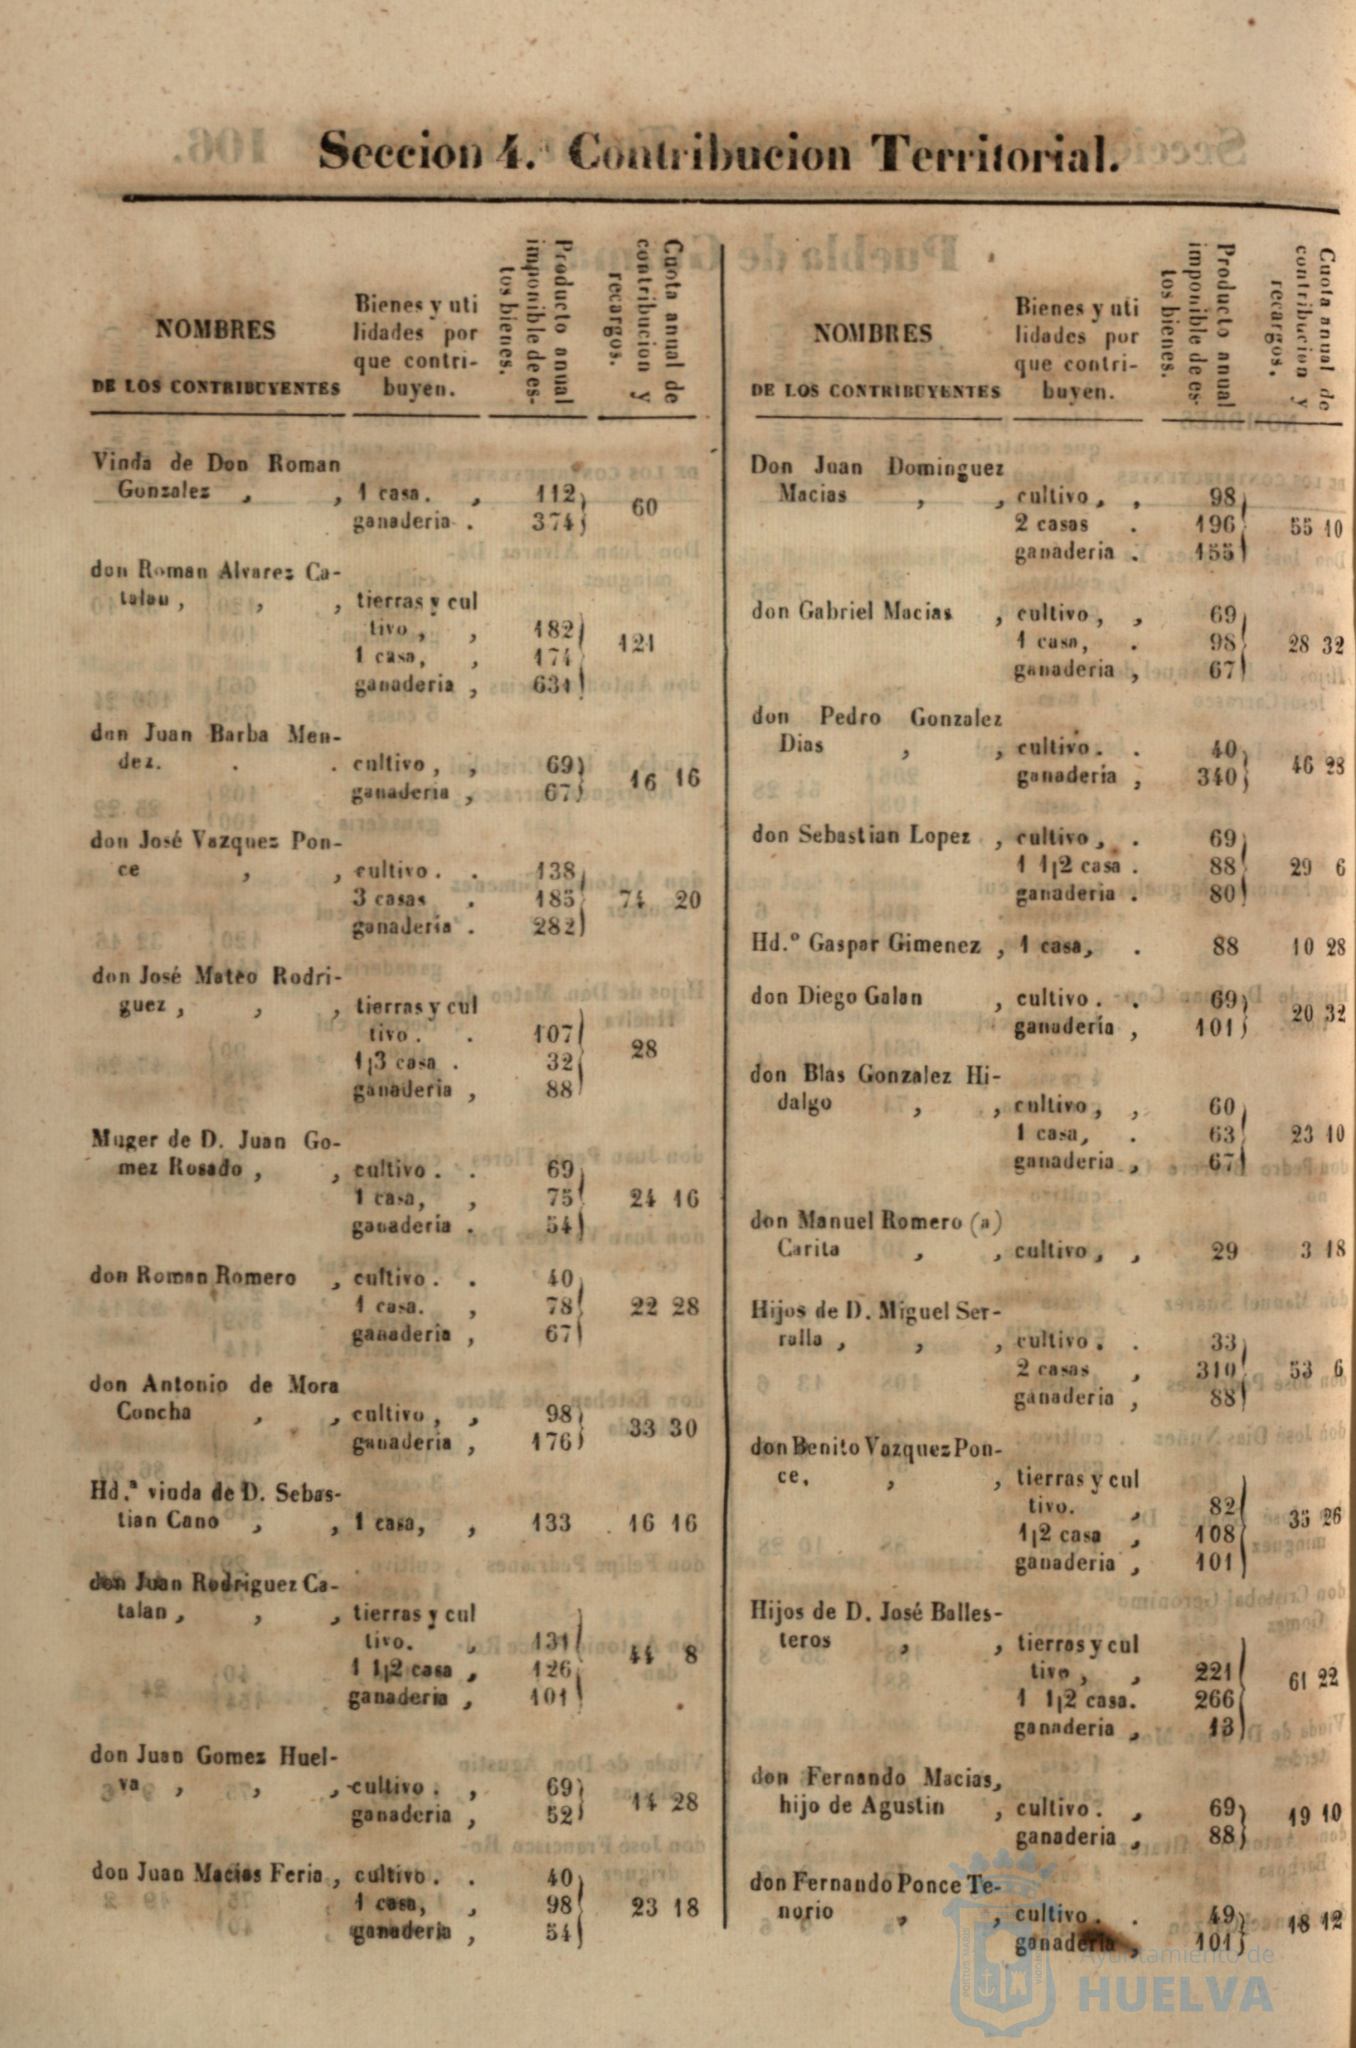 Seccion 4. Contribucion Territorial.
NOMBRES
DE LOS CONTRIBUYENTES
Bienes y uti
lidades por
que contri-
buyen.
Producto anual
imponible de es-
tos bienes.
Cuota anual de
contribucion y
recargos.
Vinda de Don Roman
Gonzalez , , 1 casa. , 112
ganaderia . 374 60
don Roman Alvarez Ca-
talan , , , tierras y cul
tivo , , 182
1 casa, , 174 121
ganaderia , 631
don Juan Barba Men-
dez. . . cultivo , , 69
ganaderia , 67 16 16
don José Vazquez Pon-
ce , , cultivo . . 138
3 casas . 185 74 20
ganaderia . 282
don José Mateo Rodri-
guez , , , tierras y cul
tivo . . 107
1|3 casa . 32 28
ganaderia , 88
Muger de D. Juan Go-
mez Rosado , , cultivo . . 69
1 casa, , 75 24 16
ganaderia . 54
don Roman Romero , cultivo . . 40
1 casa. , 78 22 28
ganaderia , 67
don Antonio de Mora
Concha , , cultivo , , 98
ganaderia , 176 33 30
Hd.ª viuda de D. Sebas-
tian Cano , , 1 casa, , 133 16 16
don Juan Rodriguez Ca-
talan , , , tierras y cul
tivo. , 131
1 1|2 casa , 126 44 8
ganaderia , 101
don Juan Gomez Huel-
va , , , cultivo . , 69
ganaderia , 52 14 28
don Juan Macias Feria , cultivo . . 40
1 casa, , 98 23 18
ganaderia , 54
NOMBRES
DE LOS CONTRIBUYENTES
Bienes y uti
lidades por
que contri-
buyen.
Producto anual
imponible de es-
tos bienes.
Cuota anual de
contribucion y
recargos.
Don Juan Dominguez
Macias , , cultivo , , 98
2 casas . 196 55 10
ganaderia . 155
don Gabriel Macias , cultivo , , 69
1 casa, . 98 28 32
ganaderia , 67
don Pedro Gonzalez
Dias , , cultivo . . 40
ganaderia , 340 46 28
don Sebastian Lopez , cultivo , . 69
1 1|2 casa . 88 29 6
ganaderia . 80
Hd.º Gaspar Gimenez , 1 casa, . 88 10 28
don Diego Galan , cultivo . . 69
ganaderia , 101 20 32
don Blas Gonzalez Hi-
dalgo , , cultivo , , 60
1 casa, . 63 23 10
ganaderia , 67
don Manuel Romero (a)
Carita , , cultivo , , 29 3 18
Hijos de D. Miguel Ser-
ralla , , , cultivo . . 33
2 casas , 310 53 6
ganaderia , 88
don Benito Vazquez Pon-
ce. , , tierras y cul
tivo. , 82
1|2 casa , 108 35 26
ganaderia , 101
Hijos de D. José Balles-
teros , , tierras y cul
tivo , , 221
1 1|2 casa. 266 61 22
ganaderia , 13
don Fernando Macias,
hijo de Agustin , cultivo . , 69
ganaderia , 88 19 10
don Fernando Ponce Te-
norio , , cultivo . . 49
ganaderia , 101 18 12
Ayuntamiento de
HUELVA